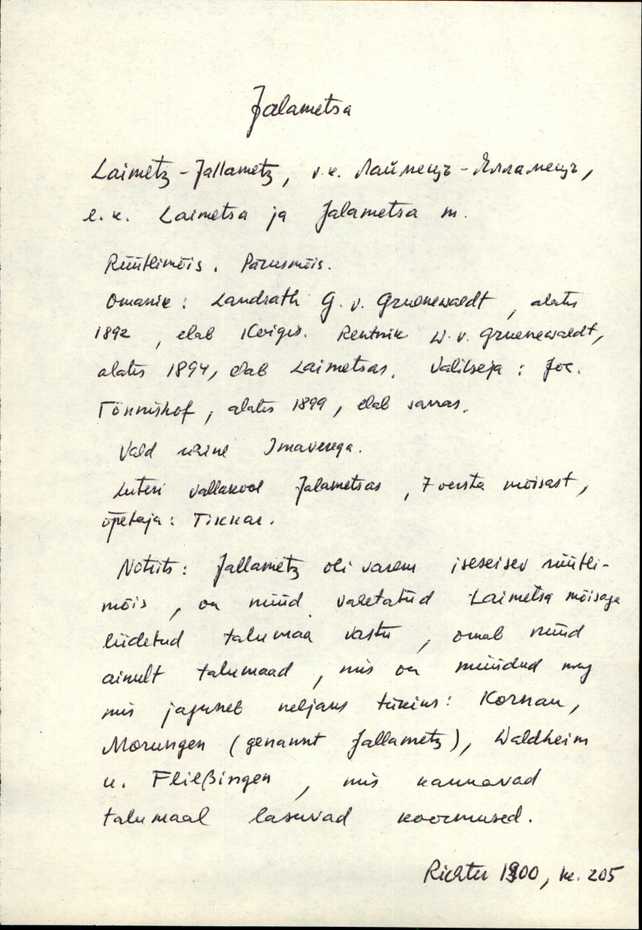 Jalametsa
Laimetz - Jallametz, v.k. Лаймецъ - Яллямецъ,
e.k. Laimetsa ja Jalametsa m.
Rüütlimõis. Pärusmõis.
Omanik: Landrath G. v. Gruenewaldt, alates
1892, elab Koigis. Rentnik W. v. Gruenewaldt,
alates 1894, elab Laimetsas. Valitseja: Joc.
Tönnishof, alates 1899, elab samas.
Vald ühine Imaverega.
Luteri vallakool Jalametsas, 7 versta mõisast,
õpetaja: Tikkar.
Notiits: Jallametz oli varem iseseisev rüütli-
mõis, on nüüd vahetatud Laimetsa mõisaga
liidetud talumaa vastu, omab nüüd
ainult talumaad, mis on müüdud ning
mis jaguneb neljaks tükiks: Kornau,
Morungen (genannt Jallametz), Waldheim
u. Fließingen, mis kannavad
talumaal lasuvad koormused.
Richter 1900, lk. 205